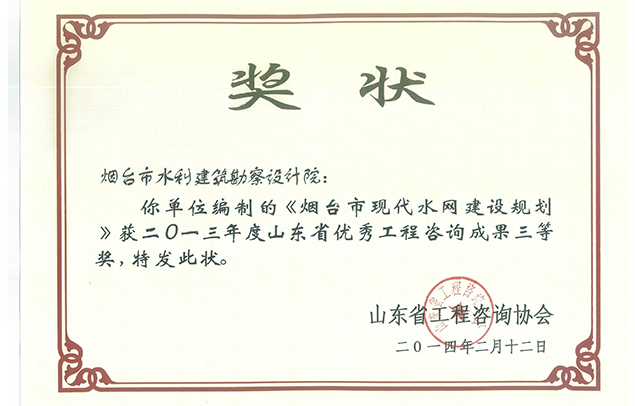 奖 状
烟台市水利建筑勘察设计院：
你单位编制的《烟台市现代水网建设规划
》获二〇一三年度山东省优秀工程咨询成果三等
奖，特发此状。
山东省工程咨询协会
二〇一四年二月十二日
山东省工程咨询协会